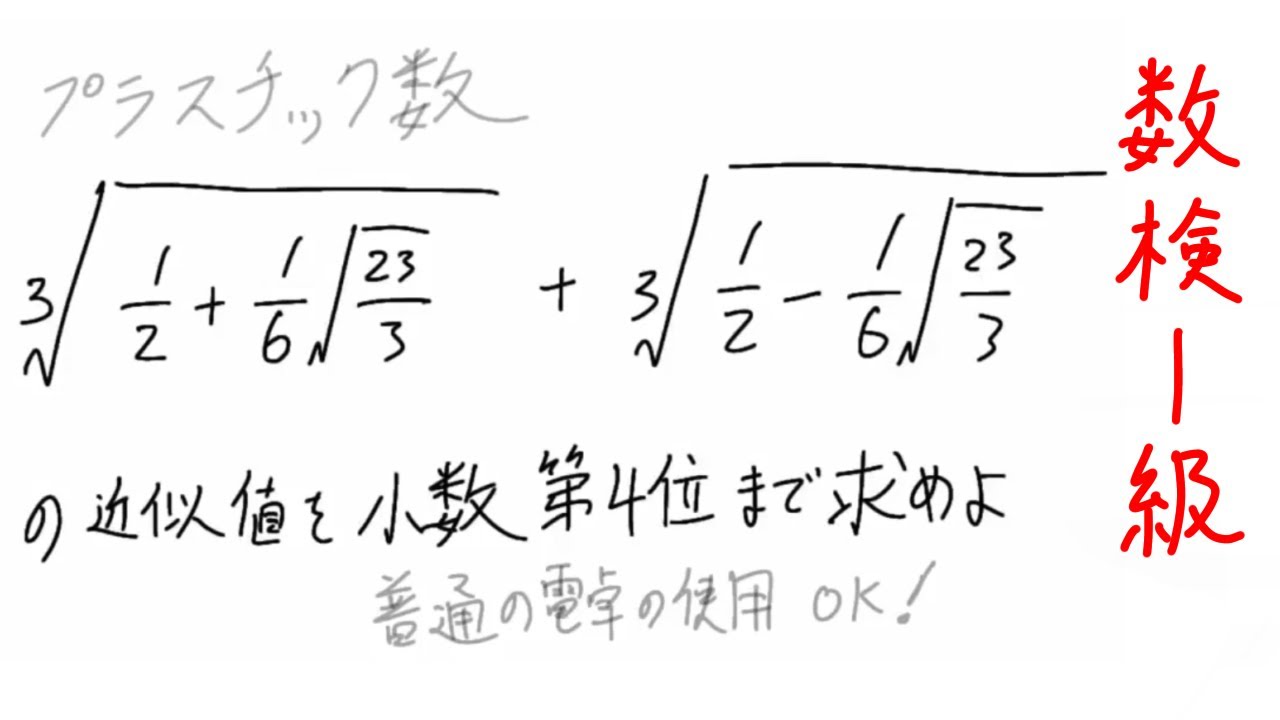 プラスチック数
∛(1/2 + 1/6 √(23/3)) + ∛(1/2 − 1/6 √(23/3))
の近似値を小数第4位まで求めよ
普通の電卓の使用 OK!
数検1級